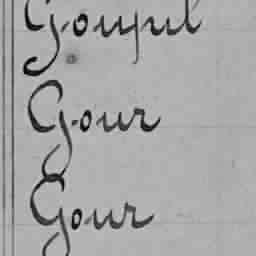 Goupil
Gour
Gour